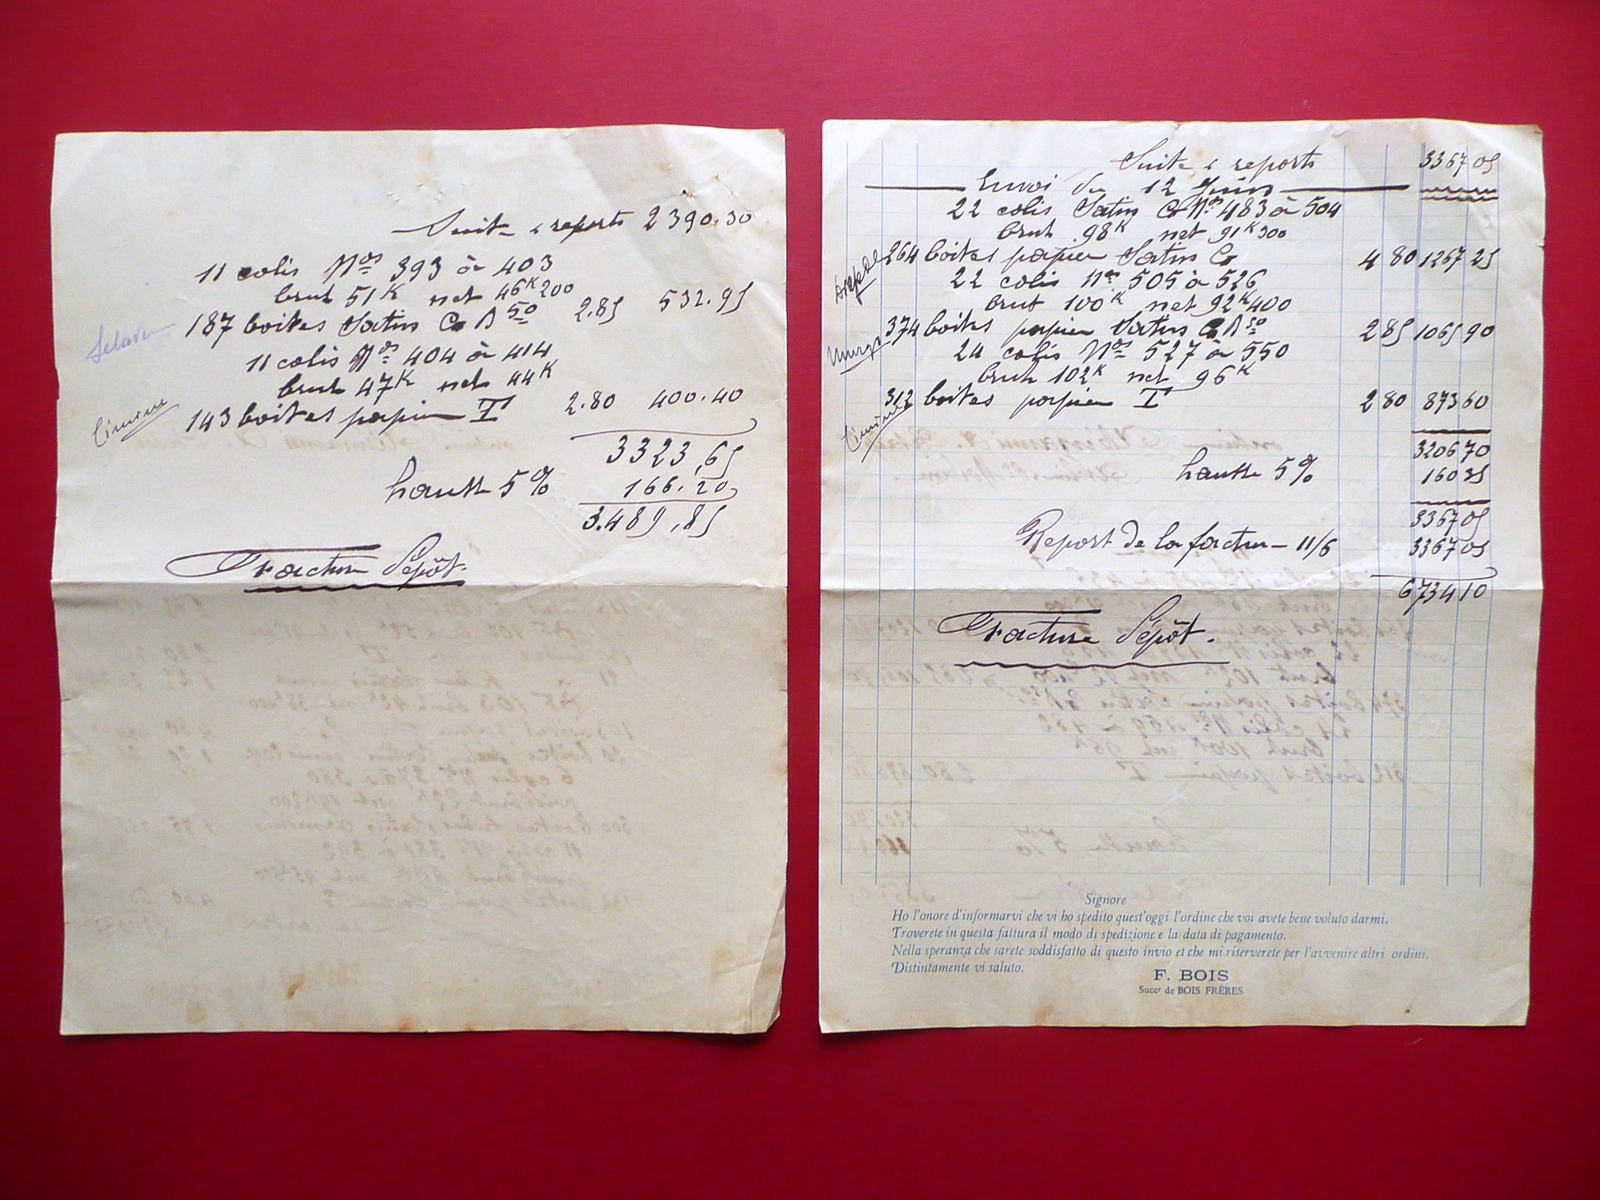 Suite & reports 2390.30
11 colis Nos 393 à 403
brut 51K net 46K200
187 boites Satin G D 50 2.85 532.95
11 colis Nos 404 à 414
brut 47K net 44K
143 boites papier T 2.80 400.40
3323,65
hausse 5% 166.20
3.489,85
Facture Dépôt.
Suite & reports 3367 05
Envoi du 12 Juin
22 colis Satin G Nos 483 à 504
brut 98K net 91K300
264 boites papier Satin G 4 80 1267 25
22 colis Nos 505 à 526
brut 100K net 92K400
374 boites papier Satin G D 50 2 85 1065 90
24 colis Nos 527 à 550
brut 102K net 96K
312 boites papier T 2 80 873 60
3206 70
hausse 5% 160 35
3367 05
Report de la facture 11/6 3367 05
6734 10
Facture Dépôt.
Signore
Ho l'onore d'informarvi che vi ho spedito quest'oggi l'ordine che voi avete bene voluto darmi.
Troverete in questa fattura il modo di spedizione e la data di pagamento.
Nella speranza che sarete soddisfatto di questo invio et che mi riserverete per l'avvenire altri ordini.
Distintamente vi saluto.
F. BOIS
Succr de BOIS FRÈRES